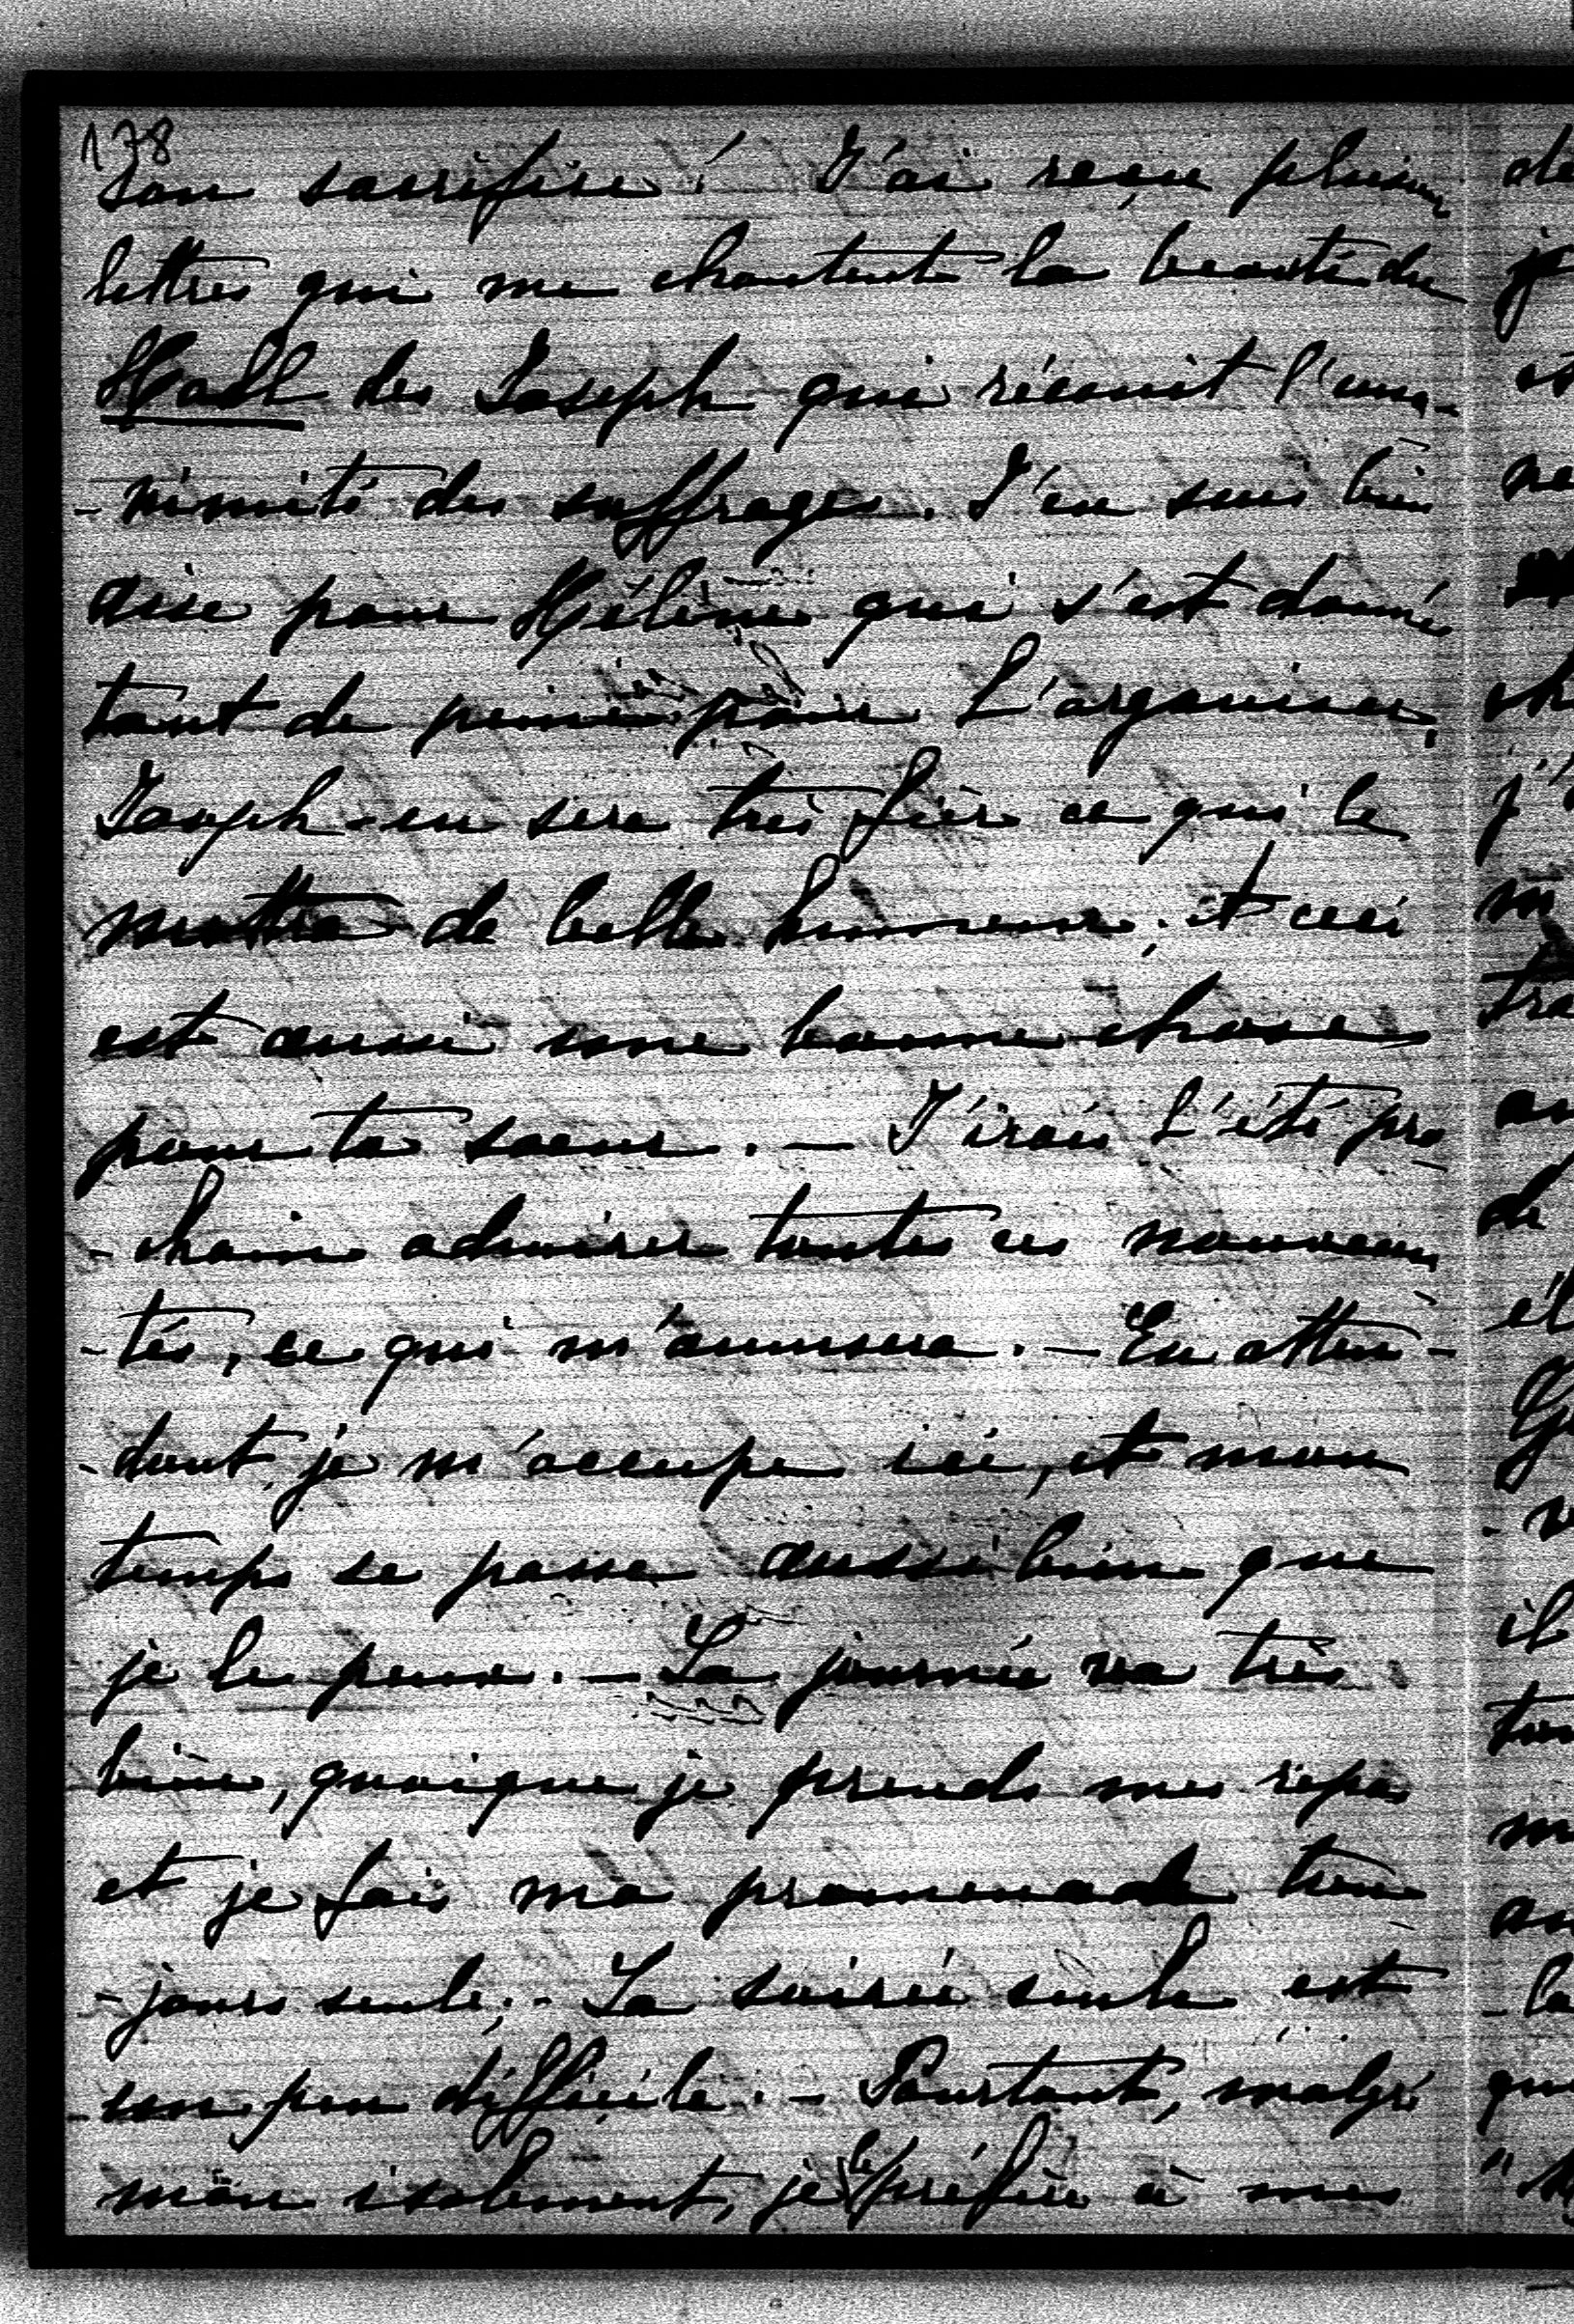 178
son sacrifice! J'ai reçu plusieurs
lettres qui me chantent la beauté du
Hall des Joseph qui réunit l'una-
-nimité des suffrages. J'en suis bien
aise pour Hélène qui s'est donné
tant de peine pour l'organiser,
Joseph en sera très fier ce qui le
mettra de belle humeur; et ceci
est aussi une bonne chose
pour ta soeur. — J'irai l'été pro-
-chain admirer toutes ces nouveau-
-tés, ce qui m'amusera. — En atten-
-dant, je m'occupe ici, et mon
temps se passe aussi bien que
je le peux. — La journée va très
bien, quoique je prends mes repas
et je fais ma promenade tou-
-jours seule; - La soirée seule est
un peu difficile. — Pourtant, malgré
mon isolement, je le préfère à mes